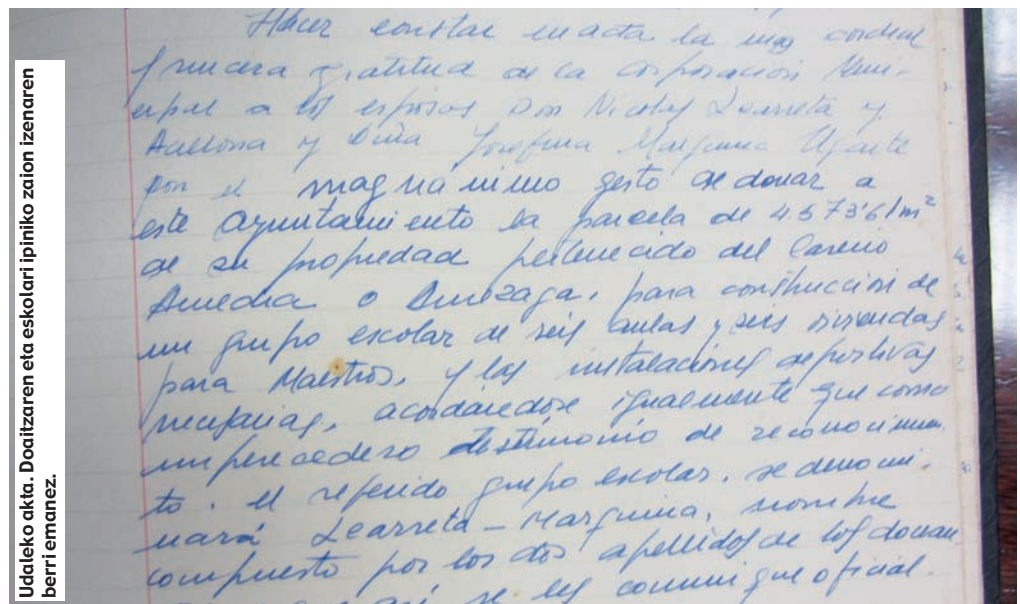 Udaleko akta. Doaitzaren eta eskolari ipiniko zaion izenaren
berri emanez.
Hacer constar en acta la mas cordial
y sincera gratitud de la Corporación Muni-
cipal a los esposos Don Nicolas Learreta y
y Doña Josefina Marquina Ugarte
por el magnánimo gesto de donar a
este Ayuntamiento la parcela de 4.573'61 m²
de su propiedad pertenecido del Caserio
o para construcción de
un grupo escolar de seis aulas y seis viviendas
para Maestros, y las instalaciones deportivas
necesarias, acordandose igualmente que como
imperecedero testimonio de reconocimien
to. el referido grupo escolar, se denomi-
nará Learreta - Marquina, nombre
compuesto por los dos apellidos de los donan
se les comunique oficial-